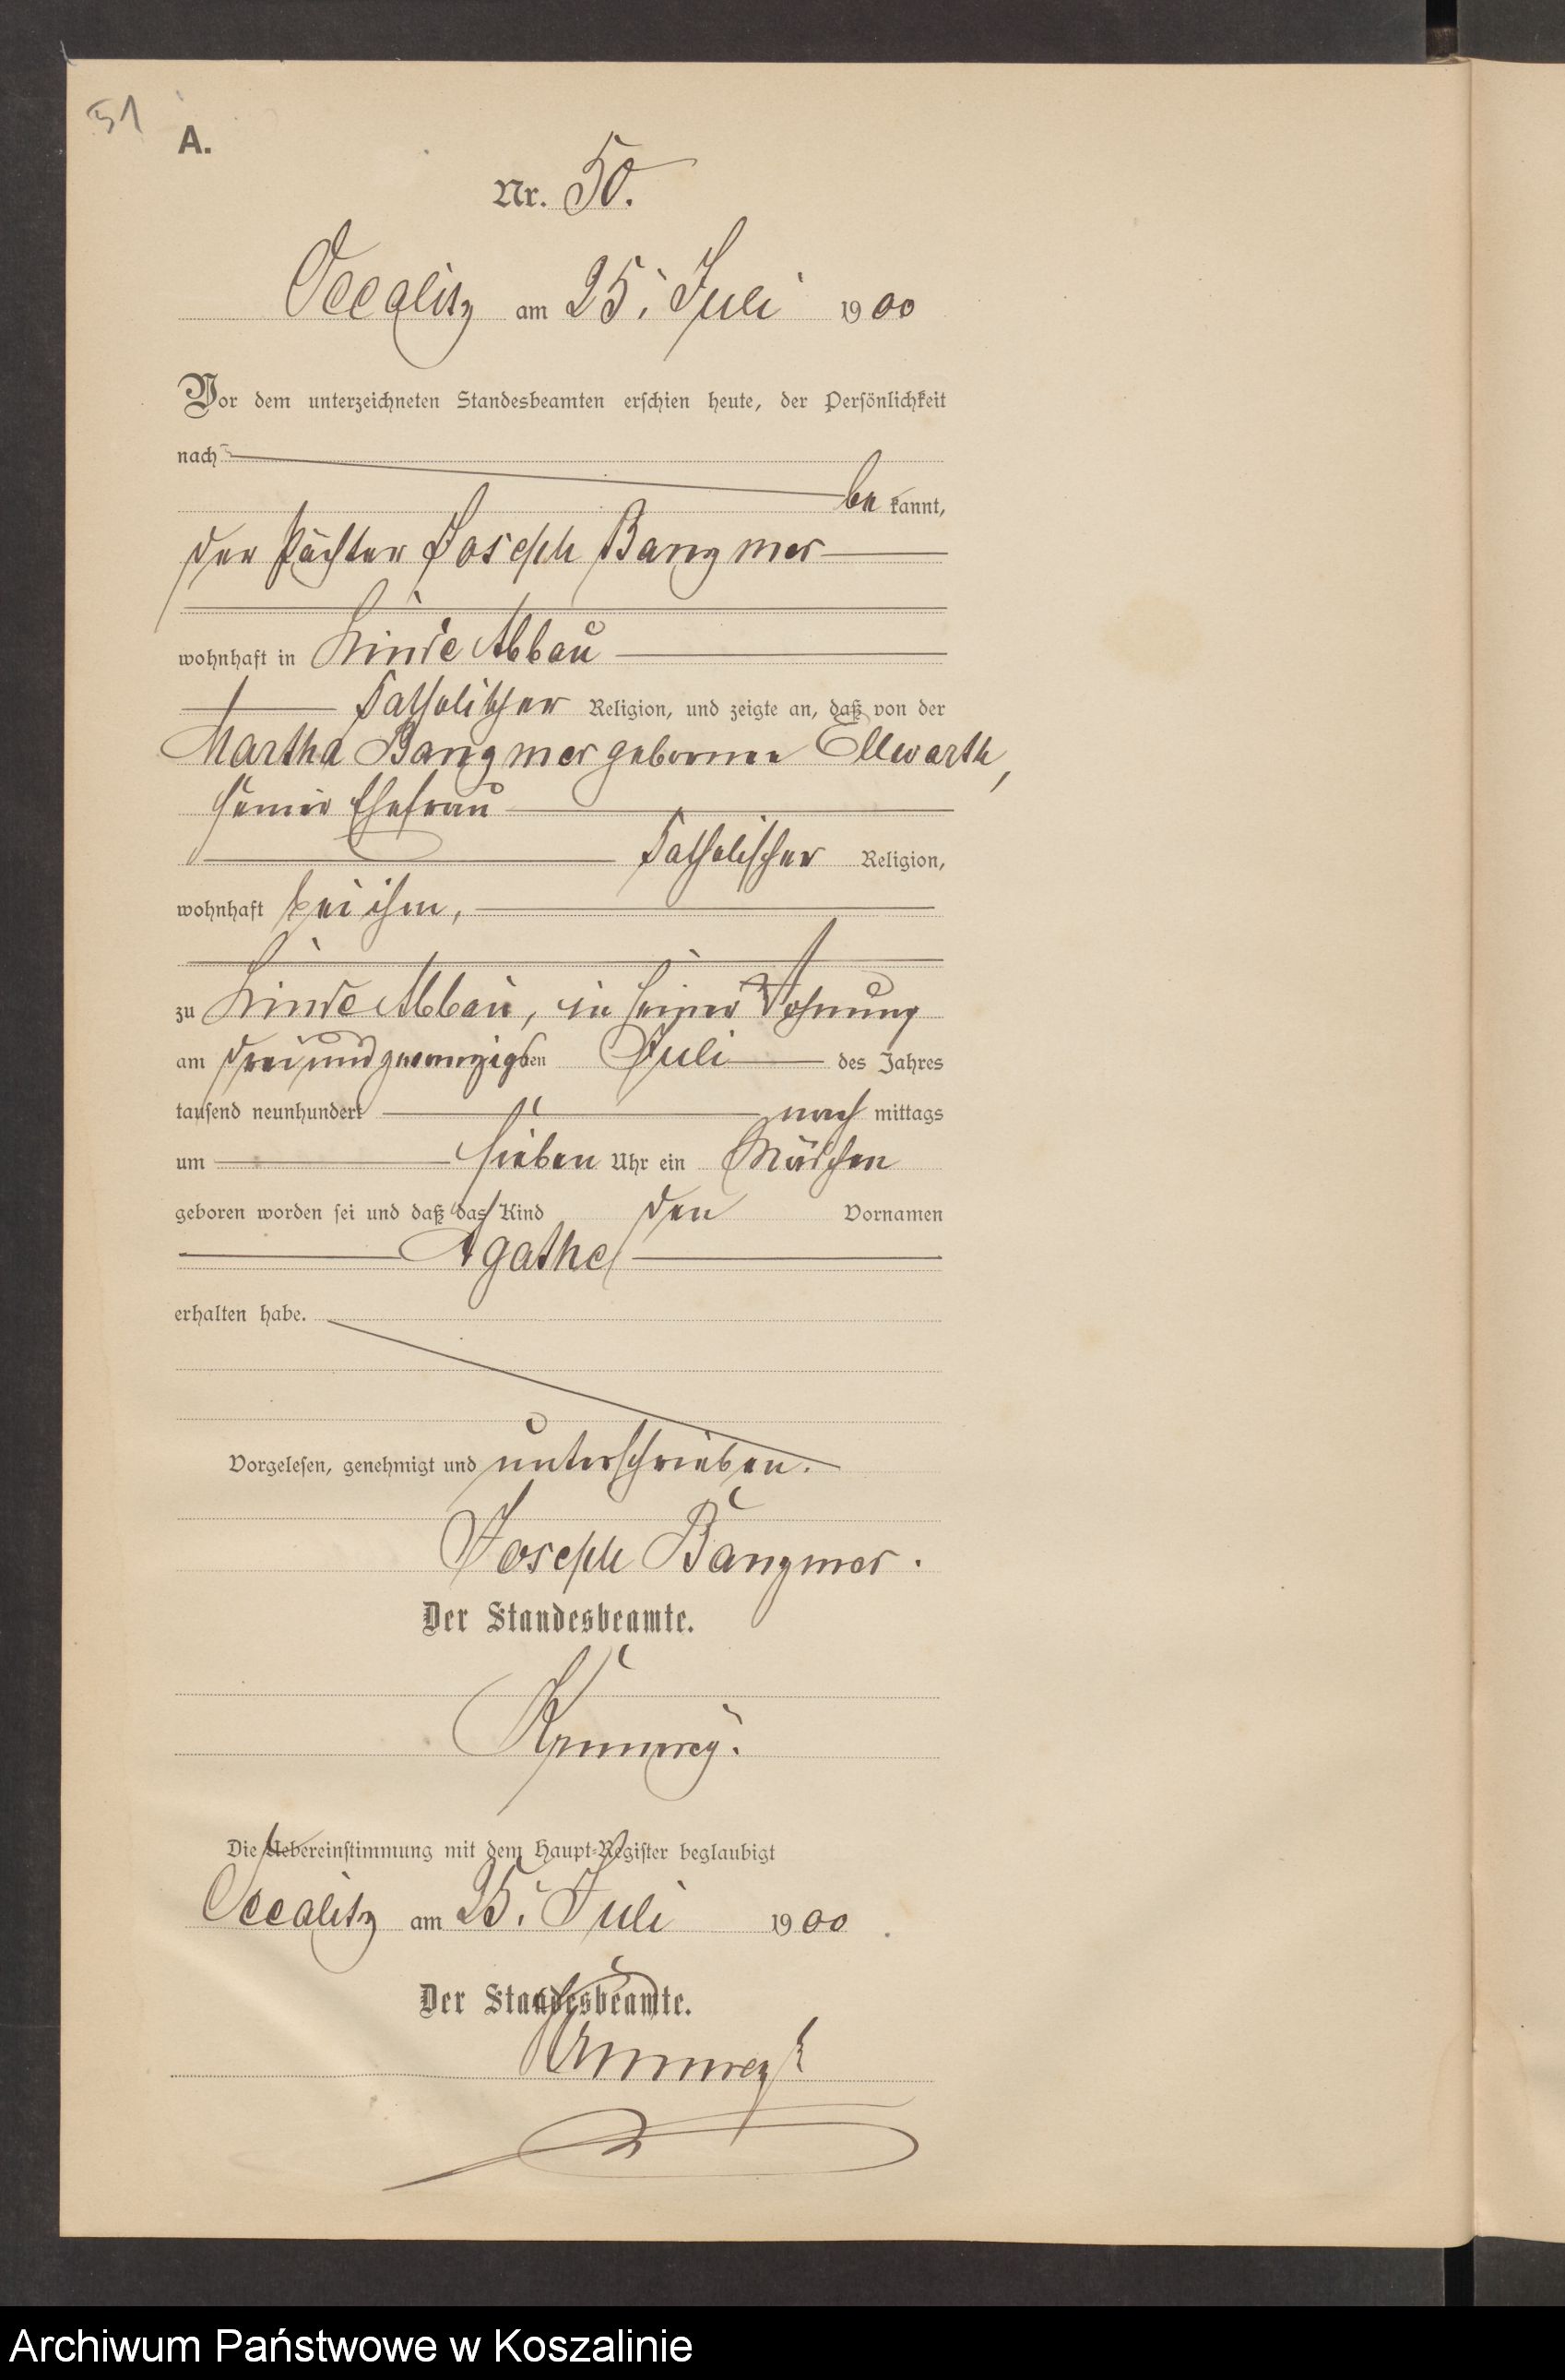 51
A.
Nr. 50.
Occalitz am 25. Juli 1900
Vor dem unterzeichneten Standesbeamten erschien heute, der Persönlichkeit
nach
be kannt,
der Pächter Joseph Bangmer
wohnhaft in Linde Abbau
katholischer Religion, und zeigte an, daß von der
Martha Bangmer geborene Ellwarth,
seiner Ehefrau
katholischer Religion,
wohnhaft bei ihm,
zu Linde Abbau, in seiner Wohnung
am dreiundzwanzigsten Juli des Jahres
tausend neunhundert nach mittags
um sieben Uhr ein Mädchen
geboren worden sei und daß das Kind den Vornamen
Agathe
erhalten habe.
Vorgelesen, genehmigt und unterschrieben.
Joseph Bangmer.
Der Standesbeamte.
Die Uebereinstimmung mit dem Haupt-Register beglaubigt
Occalitz am 25. Juli 1900
Der Standesbeamte.
Archiwum Państwowe w Koszalinie